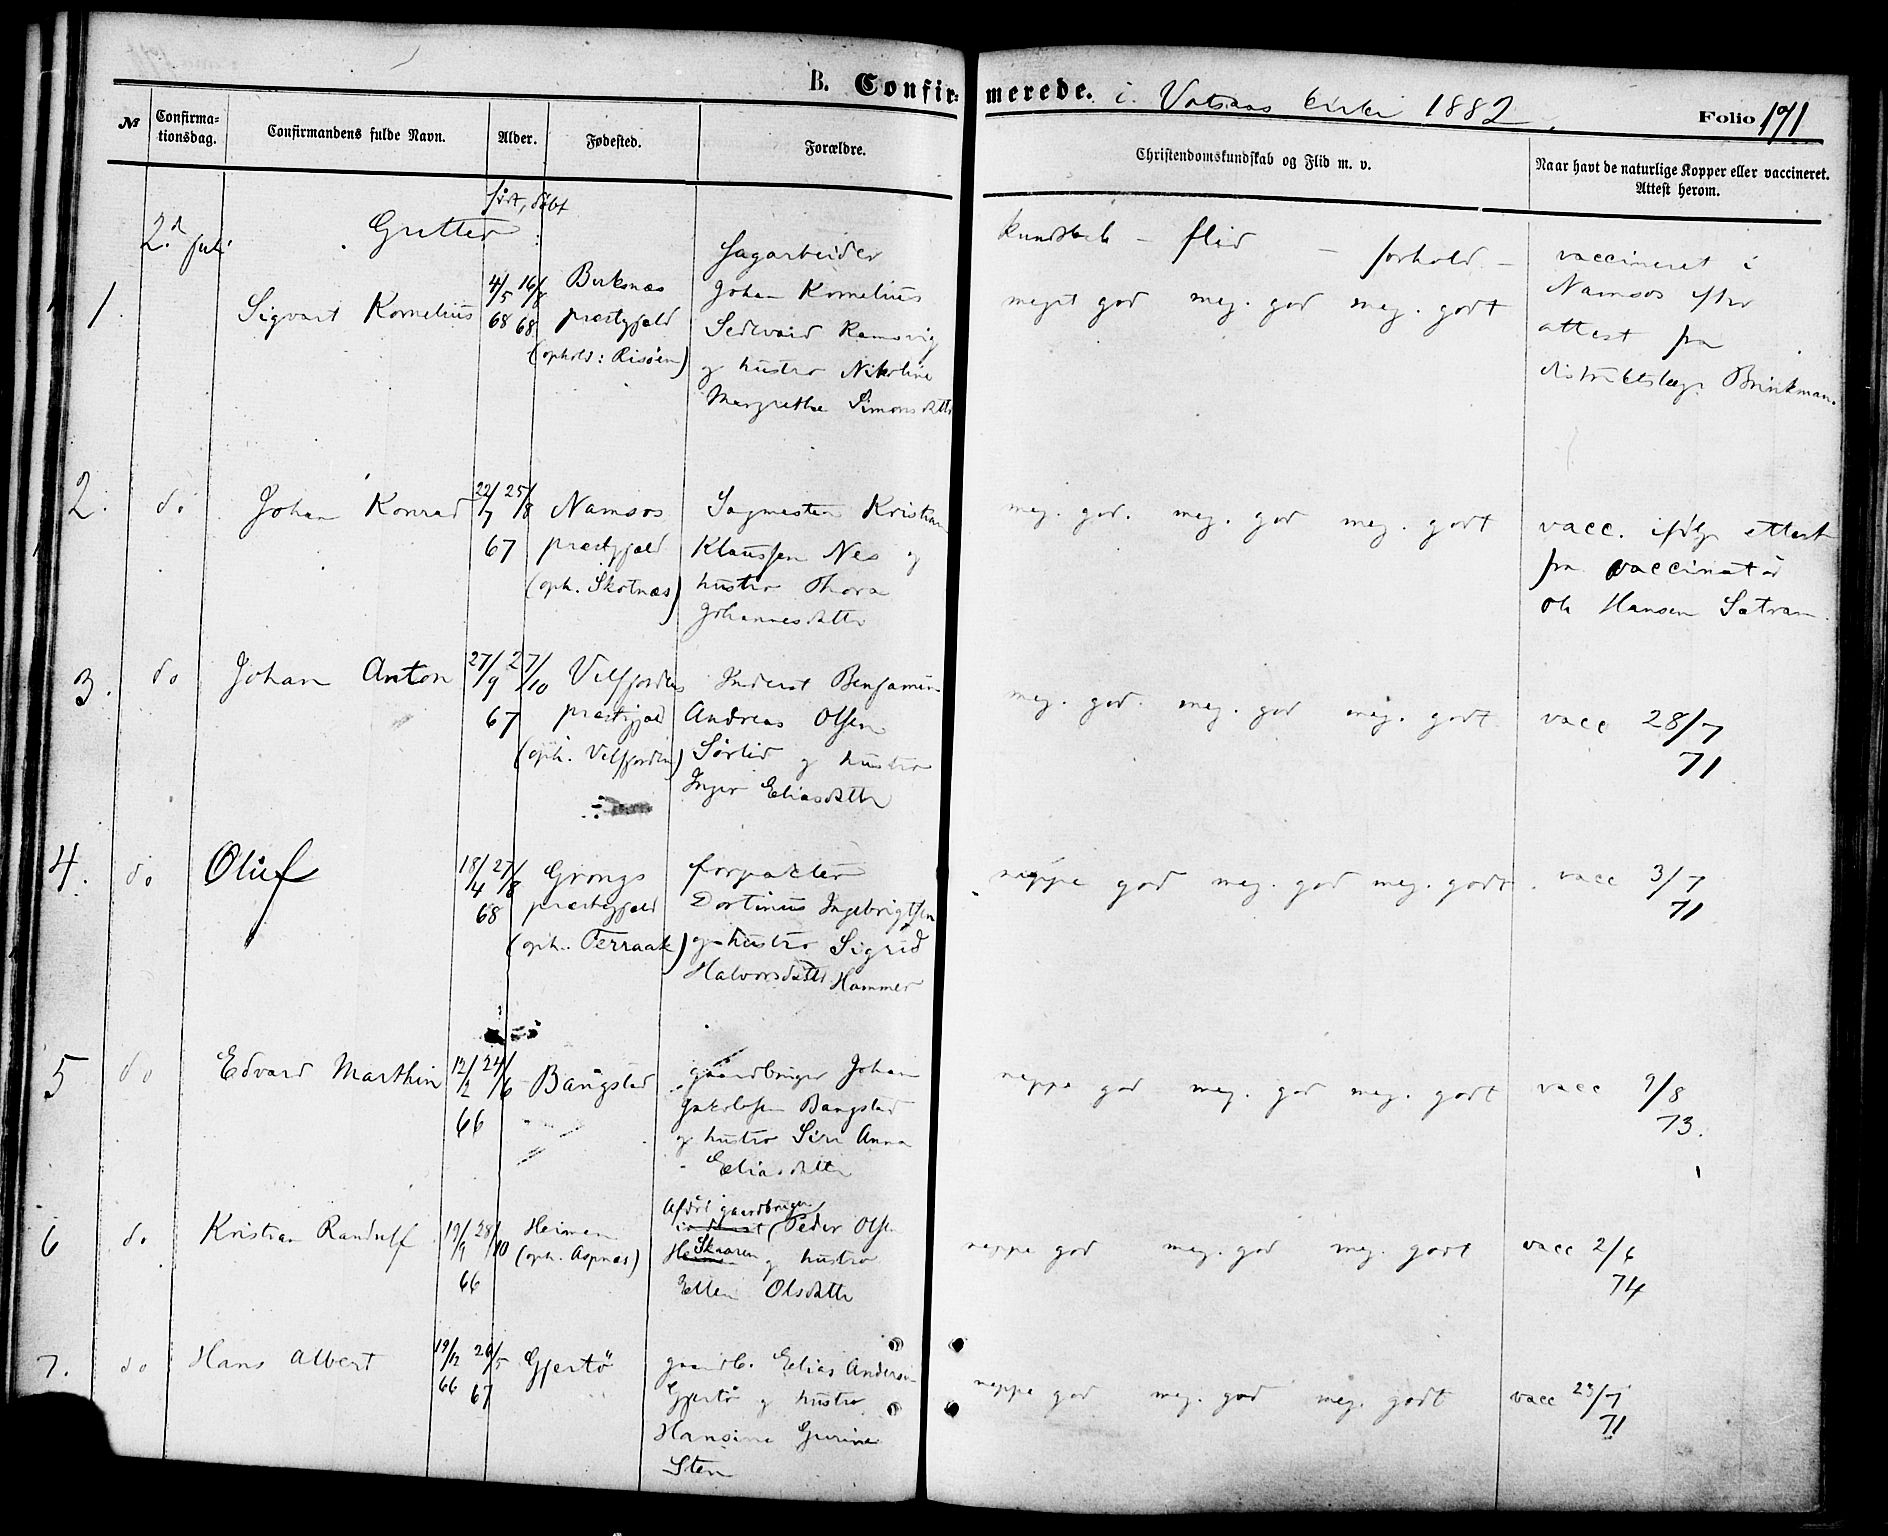 B. Confirmerede. i Vatsaas kirke 1882.
Folio 191
№
Confirmationsdag.
Confirmandens fulde Navn.
Alder.
Fødested.
Forældre.
Christendomskundskab og Flid m. v.
Naar havt de naturlige Kopper eller vaccineret. Attest herom.
født, døbt
2d juli
Gutter:
kundskab – flid – forhold –
1.
Sigvart Kornelius
4/5 68 16/8 68
præstegjeld
(ophold: Risöen)
Sagarbeider
Johan Kornelius
Ramsvig
og hustro Nikoline
Margrethe Simonsdatter
meget god meg. god meg. godt
vaccineret i
Namsos efter
attest fra
distriktslæge Brinkman.
2. do
Johan Konrad
22/7 25/8
67
Namsos
præstegjeld
(oph. Skotnæs)
Sagmester Kristian
Klaussen Nes og
hustro Thora
Johannesdatter
meg. god. meg. god meg. godt
vacc. ifölge attest
fra vaccinatör
Ole Hansen Satram.
3. do
Johan Anton
27/9 27/10
67
Velfjordens
præstegjeld
(oph. Velfjorden)
Inderst Benjamin
Andreas Olsen
Sörlid og hustro
Inger Eliasdatter
meg. god. meg. god meg. godt
vacc 28/7
71
4. do
Oluf
18/4 27/8
68
Grongs
præstegjeld
(oph. Terraak)
forpakter
Dortinus Ingebrigtsen
og hustro Sigrid
Halvorsdatter Hammer
neppe god meg. god meg. godt.
vacc 3/7
71
5 do
Edvard Marthin
12/2 24/6
66
Bangstad
gaardbruger Johan
Jakobsen Bangstad
og hustro Siri Anna
Eliasdatter
neppe god meg. god meg. godt
vacc 9/8
73.
6 do
Kristian Randulf
19/9 28/10
66
Heimen
(oph. Aspnæs)
Afdöd gaardbruger
inderst (Peder Olsen
Heimen Skaaren og hustro
Ellen Olsdatter
neppe god meg. god meg. godt
vacc 2/6
74
7. do
Hans Albert
19/12 66 26/5 67
Gjertö
gaardb. Elias Andersen
Gjertö og hustro
Hansine Gurine
Sten
neppe god meg. god meg. godt
vacc 23/7
71